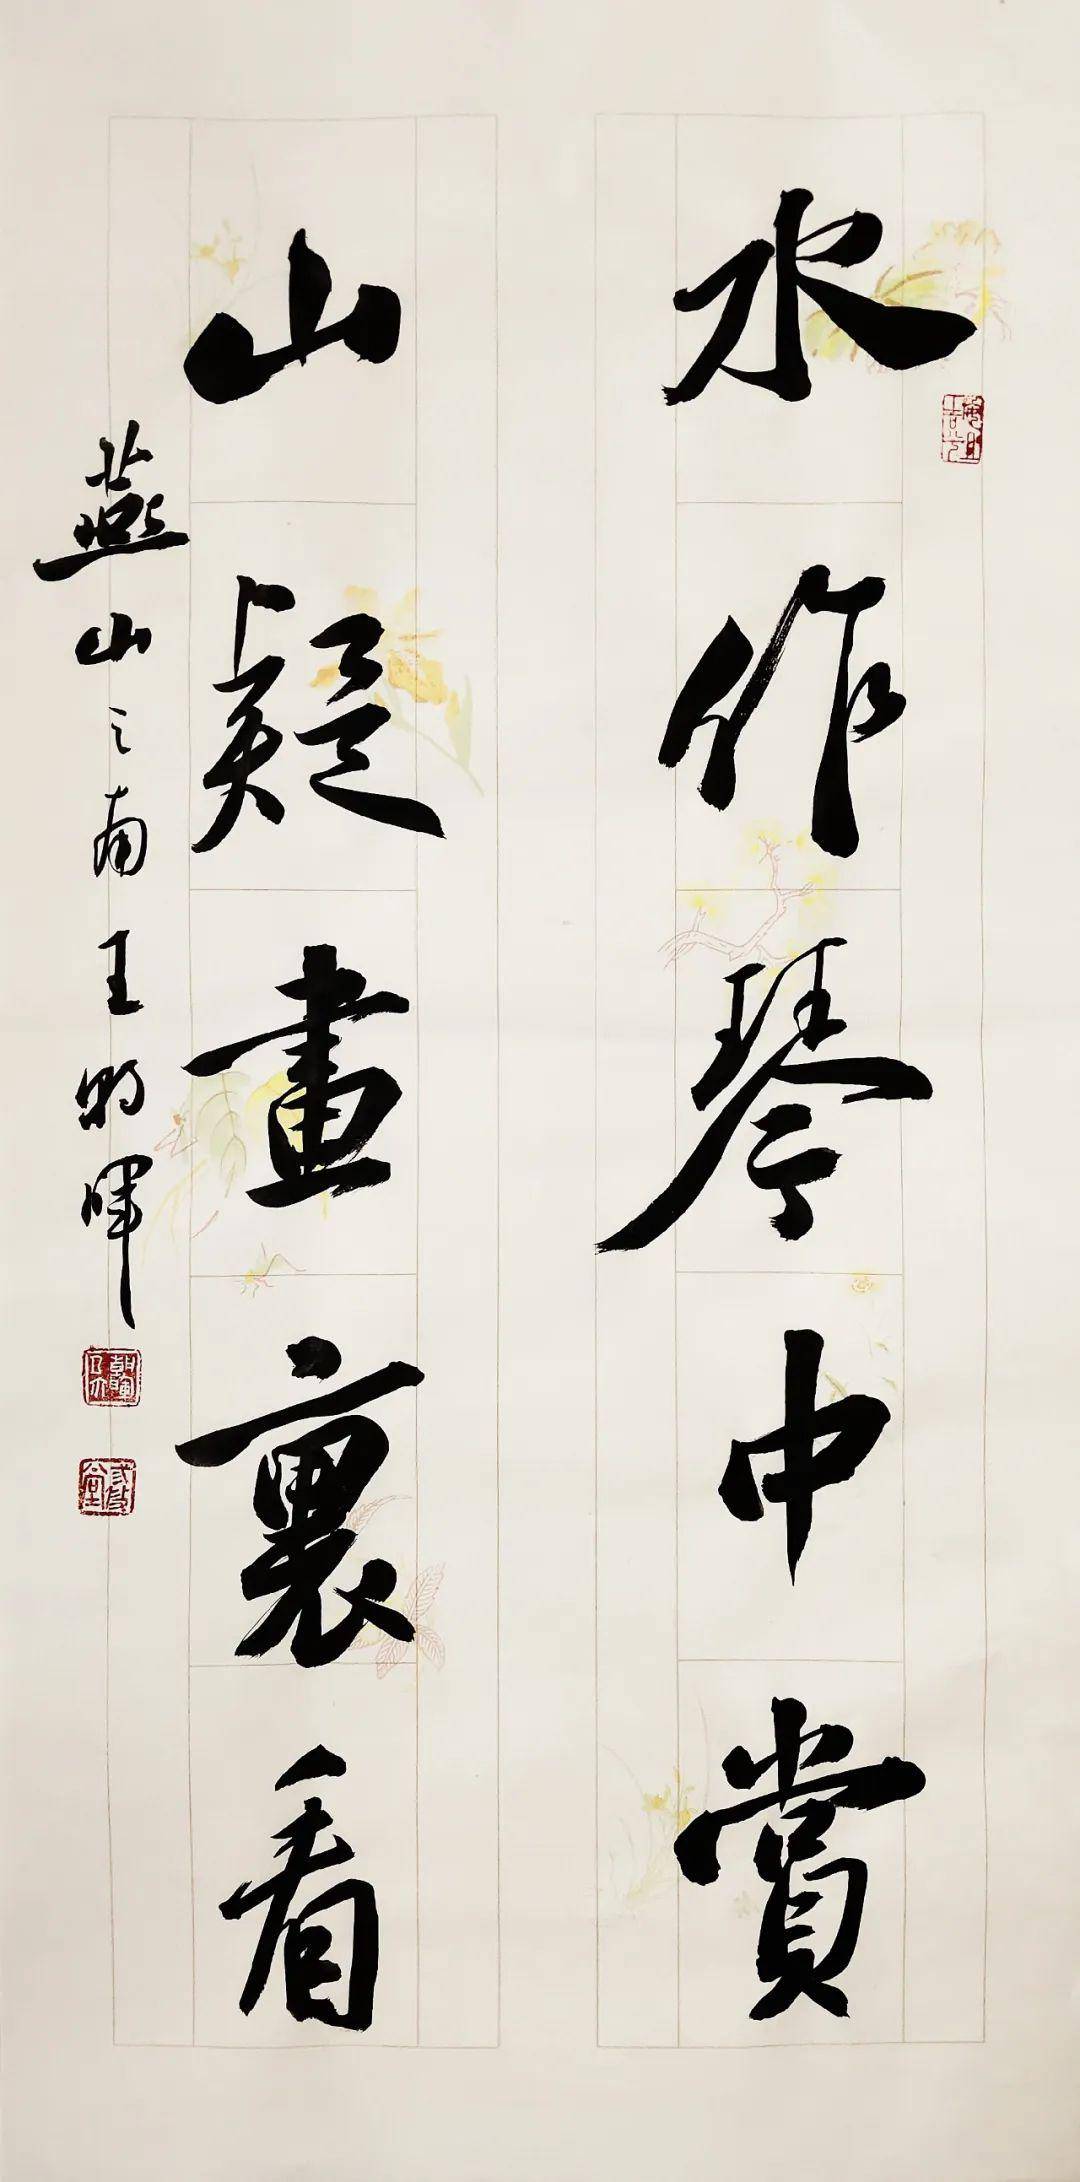 水作琴中賞
山疑畫裏看
燕山之南王明晖